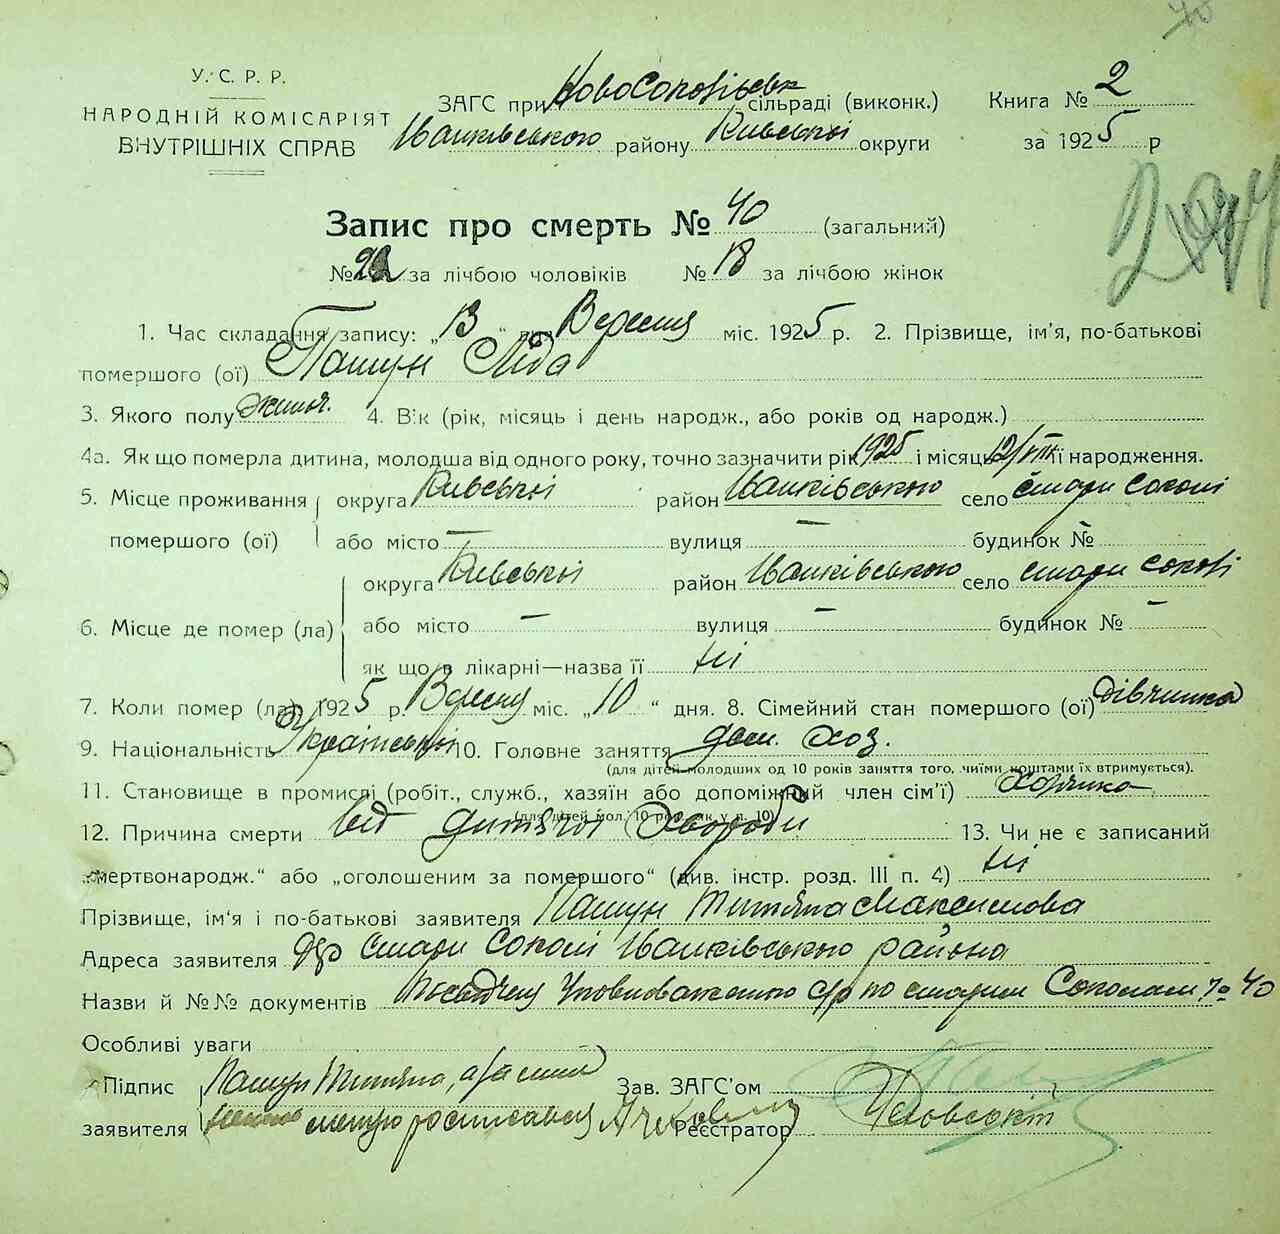 У. С. Р. Р.
НАРОДНІЙ КОМІСАРІЯТ
ВНУТРІШНІХ СПРАВ
ЗАГС при Новосоколівськ сільраді (виконк.)
Іванківського району Київської округи
Книга № 2
за 1925 р
Запис про смерть № 40 (загальний)
№ 22 за лічбою чоловіків № 18 за лічбою жінок
1. Час складання запису: „13“ дня Вересня міс. 1925 р. 2. Прізвище, ім'я, по-батькові
помершого (ої) Пашун Ліда
3. Якого полу жіноч. 4. Вік (рік, місяць і день народж., або років од народж.)
4а. Як що померла дитина, молодша від одного року, точно зазначити рік 1925 і місяць 12/VIII її народження.
5. Місце проживання округа Київської район Іванківського село стари соколі
помершого (ої) або місто — вулиця — будинок №
округа Київської район Іванківського село стари соколі
6. Місце де помер (ла) або місто — вулиця — будинок № —
як що в лікарні—назва її ні
7. Коли помер (ла) 1925 р. Вересня міс. „10“ дня. 8. Сімейний стан помершого (ої) дівчинка
9. Національність Української 10. Головне заняття дом. хоз.
(для дітей молодших од 10 років заняття того, чиїми коштами їх втримується).
11. Становище в промислі (робіт., служб., хазяїн або допоміжний член сім'ї)
(для дітей мол. 10 рок. як у п. 10)
12. Причина смерти від дитячої хвороби 13. Чи не є записаний
„мертвонародж.“ або „оголошеним за помершого“ (див. інстр. розд. III п. 4) ні
Прізвище, ім'я і по-батькові заявителя Пашун Титяна Максимова
Адреса заявителя дер стари Соколі Іванківського района
Назви й №№ документів Посвідчен Уповноваженого с/р по старим Соколам № 40
Особливі уваги
Підпис Пашун Титяна, а за
заявителя росписався
Зав. ЗАГС'ом
Реєстратор